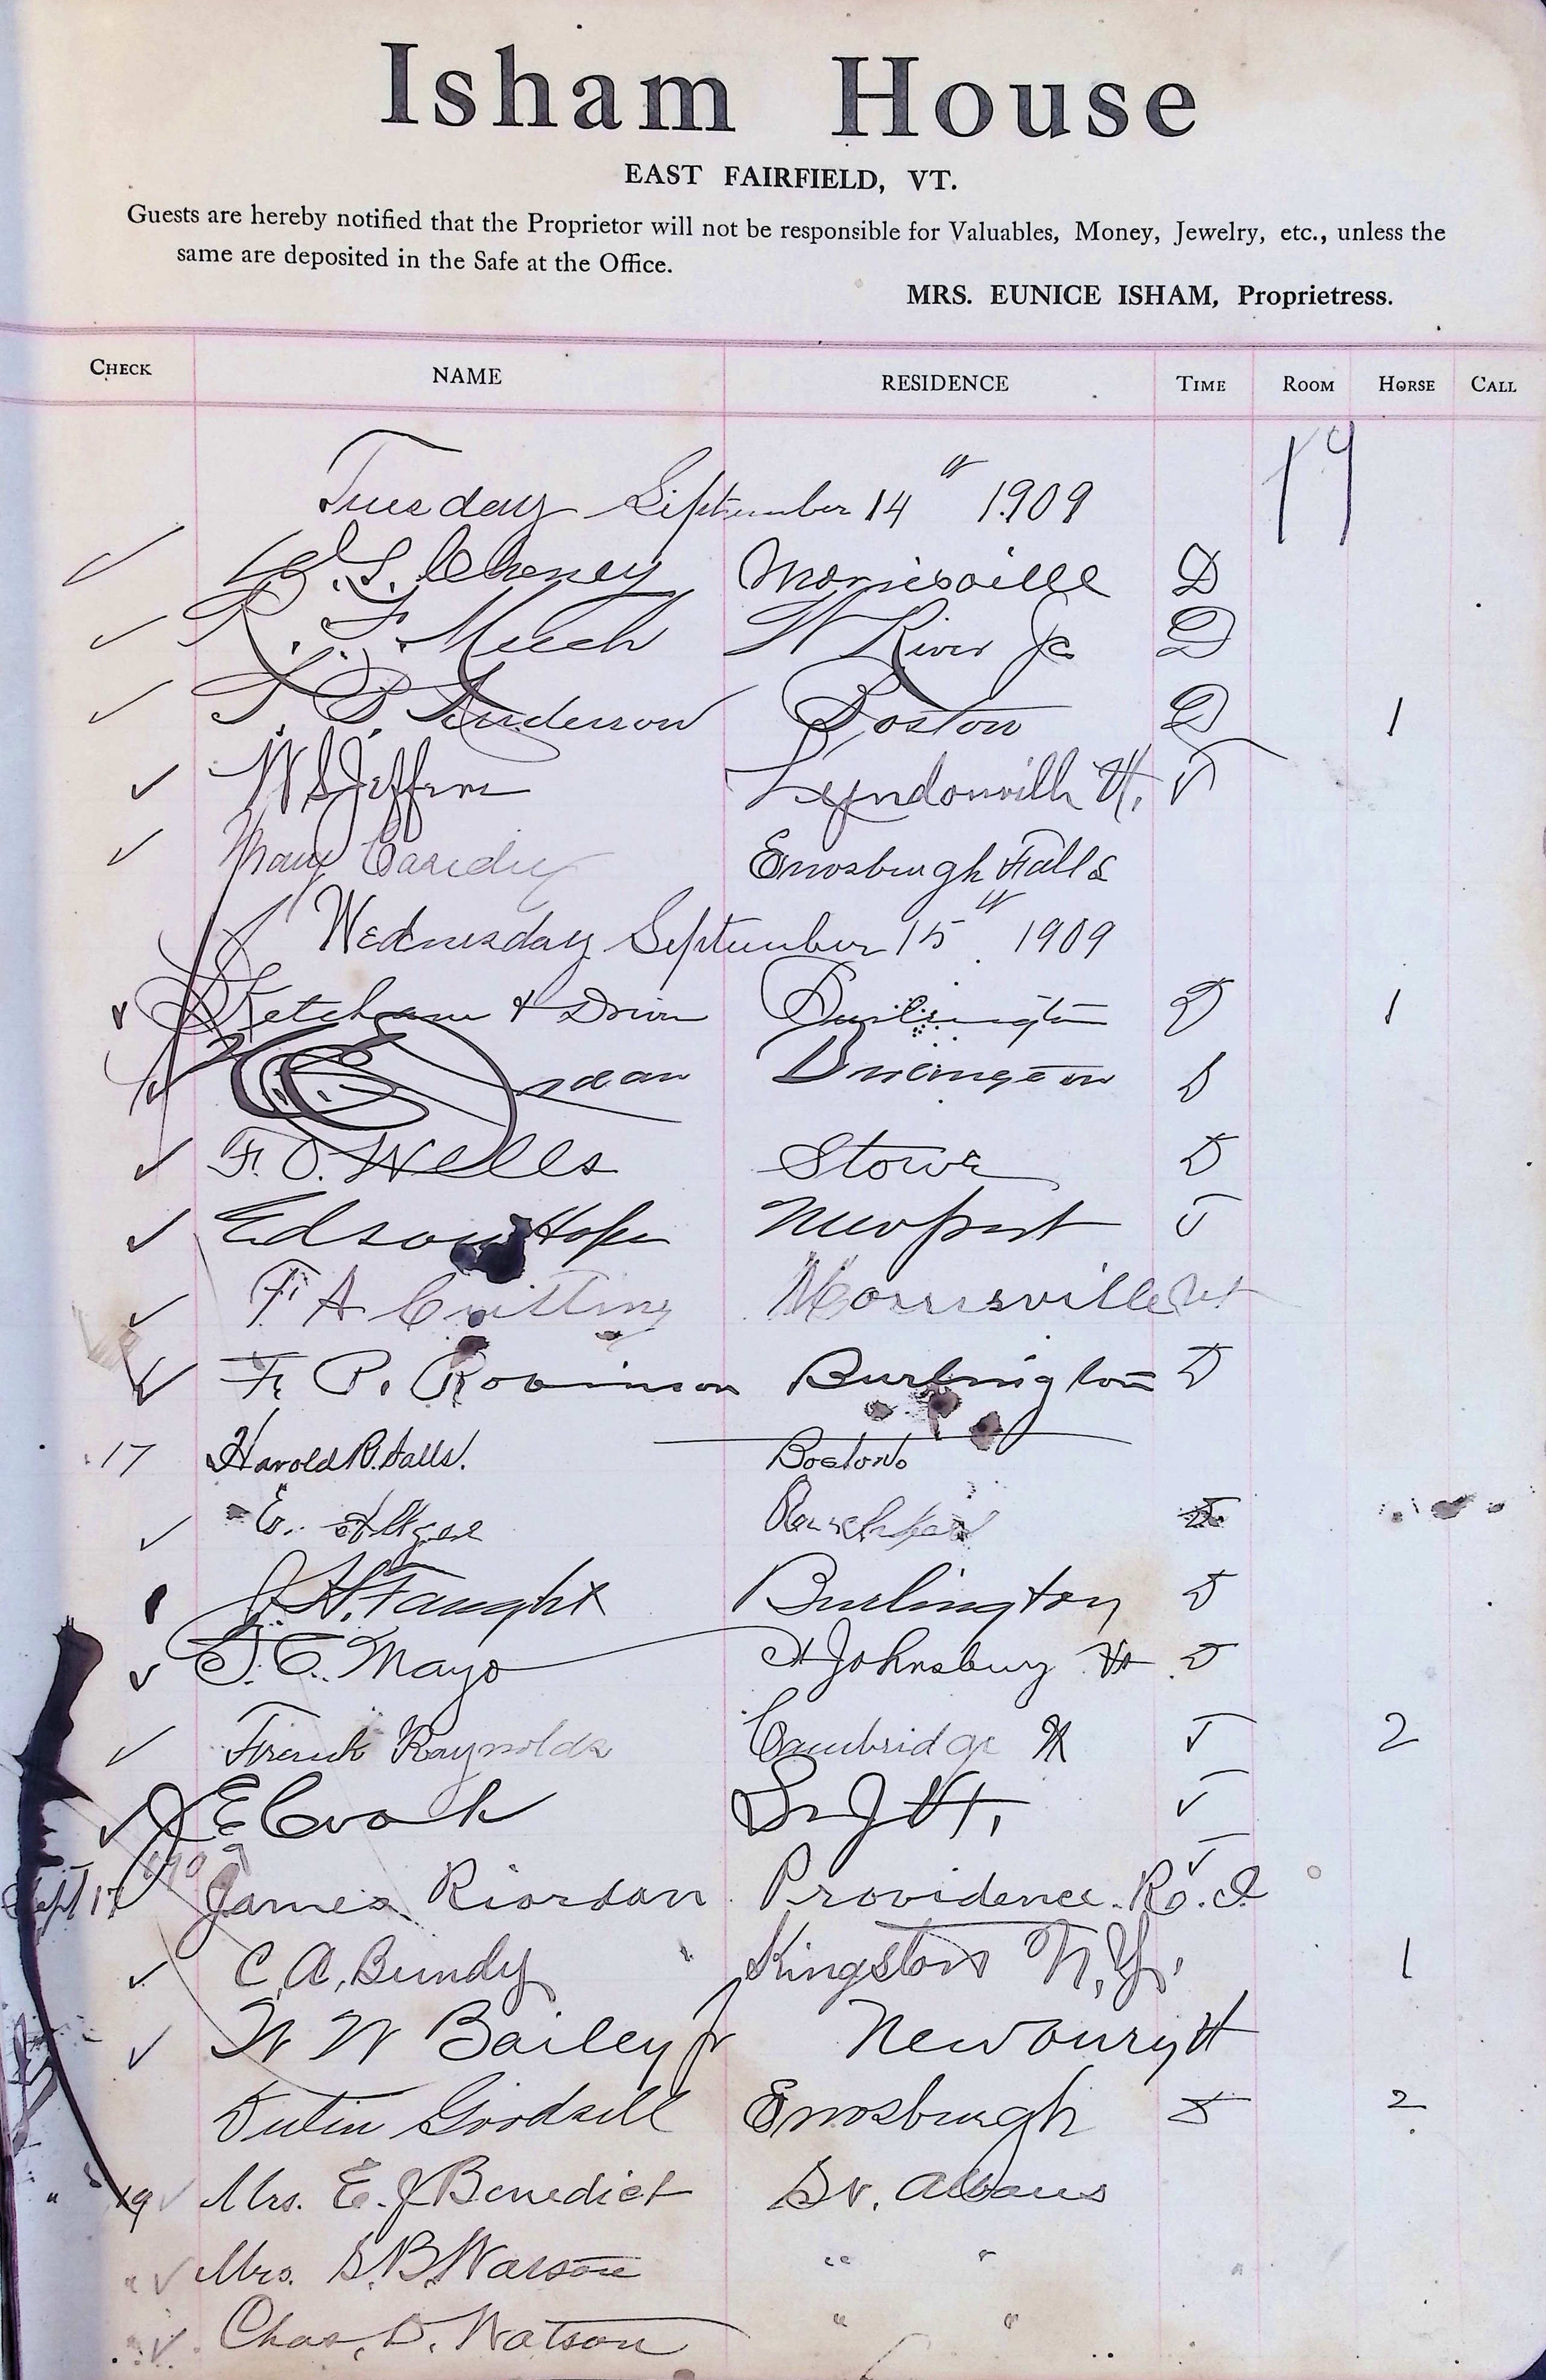 Isham House
EAST FAIRFIELD, VT.
Guests are hereby notified that the Proprietor will not be responsible for Valuables, Money, Jewelry, etc., unless the
same are deposited in the Safe at the Office.
MRS. EUNICE ISHAM, Proprietress.
CHECK NAME RESIDENCE TIME ROOM HORSE CALL
Tuesday September 14th 1909
W. S. Cheney Morrisville D
R. F. Meech W River Jc D
S. B. Anderson Boston D 1
W S Lyndonville Vt.
Mary Enosburgh Falls
Wednesday September 15th 1909
Ketcham & Burlington D 1
Burlington D
F. O. Wells Stowe D
Edson Newport T
F A Cutting Morrisville Vt
F. P. Robinson Burlington D
17 Harold P. Boston
E.
J. H. Faught Burlington D
T. C. Mayo St Johnsbury Vt D
Frank Raynolds Cambridge Vt T 2
J E Cook Vt.
Sept 17 1909 James Riordan Providence. R. I
C. A. Bundy Kingston N. Y. 1
W W Bailey Jr Newbury Vt
Goodsell Enosburgh 2
" 19 Mrs. E. J Benedict St. Albans
" Mrs. S. B. Watson " "
" Chas. D. Watson " "